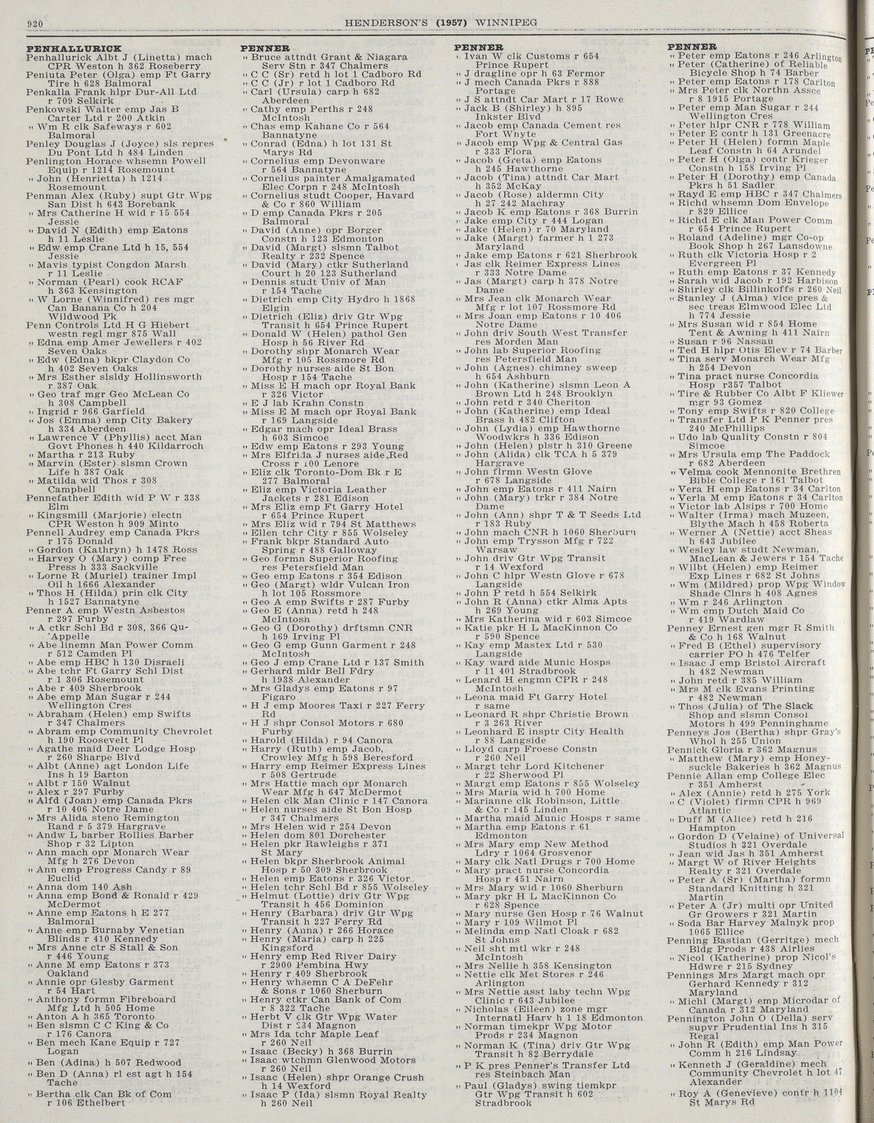 920
HENDERSON'S (1957) WINNIPEG
PENHALLURICK
Penhallurick Albt J (Linetta) mach
CPR Weston h 362 Roseberry
Peniuta Peter (Olga) emp Ft Garry
Tire h 628 Balmoral
Penkalla Frank hlpr Dur-All Ltd
r 709 Selkirk
Penkowski Walter emp Jas B
Carter Ltd r 200 Atkin
" Wm R clk Safeways r 602
Balmoral
Penley Douglas J (Joyce) sls repres
Du Pont Ltd h 484 Linden
Penlington Horace whsemn Powell
Equip r 1214 Rosemount
" John (Henrietta) h 1214
Rosemount
Penman Alex (Ruby) supt Gtr Wpg
San Dist h 643 Borebank
" Mrs Catherine H wid r 15 554
Jessie
" David N (Edith) emp Eatons
h 11 Leslie
" Edw emp Crane Ltd h 15, 554
Jessie
" Mavis typist Congdon Marsh
r 11 Leslie
" Norman (Pearl) cook RCAF
h 363 Kensington
" W Lorne (Winnifred) res mgr
Can Banana Co h 204
Wildwood Pk
Penn Controls Ltd H G Hiebert
westn regl mgr 875 Wall
" Edna emp Amer Jewellers r 402
Seven Oaks
" Edw (Edna) bkpr Claydon Co
h 402 Seven Oaks
" Mrs Esther slsldy Hollinsworth
r 387 Oak
" Geo traf mgr Geo McLean Co
h 308 Campbell
" Ingrid r 966 Garfield
" Jos (Emma) emp City Bakery
h 334 Aberdeen
" Lawrence V (Phyllis) acct Man
Govt Phones h 440 Kildarroch
" Martha r 213 Ruby
" Marvin (Ester) slsmn Crown
Life h 387 Oak
" Matilda wid Thos r 308
Campbell
Pennefather Edith wid P W r 338
Elm
" Kingsmill (Marjorie) electn
CPR Weston h 909 Minto
Pennell Audrey emp Canada Pkrs
r 175 Donald
" Gordon (Kathryn) h 1478 Ross
" Harvey O (Mary) comp Free
Press h 333 Sackville
" Lorne R (Muriel) trainer Impl
Oil h 1666 Alexander
" Thos H (Hilda) prin clk City
h 1527 Bannatyne
Penner A emp Westn Asbestos
r 297 Furby
" A ctkr Schl Bd r 308, 366 Qu-
'Appelle
" Abe linemn Man Power Comm
r 512 Camden Pl
" Abe emp HBC h 130 Disraeli
" Abe tchr Ft Garry Schl Dist
r 1 306 Rosemount
" Abe r 409 Sherbrook
" Abe emp Man Sugar r 244
Wellington Cres
" Abraham (Helen) emp Swifts
r 347 Chalmers
" Abram emp Community Chevrolet
h 190 Roosevelt Pl
" Agathe maid Deer Lodge Hosp
r 260 Sharpe Blvd
" Albt (Anne) agt London Life
Ins h 19 Barton
" Albt r 150 Walnut
" Alex r 297 Furby
" Alfd (Joan) emp Canada Pkrs
r 10 406 Notre Dame
" Mrs Alida steno Remington
Rand r 5 379 Hargrave
" Andw L barber Rollies Barber
Shop r 32 Lipton
" Ann mach opr Monarch Wear
Mfg h 276 Devon
" Ann emp Progress Candy r 89
Euclid
" Anna dom 140 Ash
" Anna emp Bond & Ronald r 429
McDermot
" Anne emp Eatons h E 277
Balmoral
" Anne emp Burnaby Venetian
Blinds r 410 Kennedy
" Mrs Anne ctr S Stall & Son
r 446 Young
" Anne M emp Eatons r 373
Oakland
" Annie opr Glesby Garment
r 54 Hart
" Anthony formn Fibreboard
Mfg Ltd h 505 Home
" Anton A h 365 Toronto
" Ben slsmn C C King & Co
r 176 Canora
" Ben mech Kane Equip r 727
Logan
" Ben (Adina) h 507 Redwood
" Ben D (Anna) rl est agt h 154
Tache
" Bertha clk Can Bk of Com
r 106 Ethelbert
PENNER
" Bruce attndt Grant & Niagara
Serv Stn r 347 Chalmers
" C C (Sr) retd h lot 1 Cadboro Rd
" C C (Jr) r lot 1 Cadboro Rd
" Carl (Ursula) carp h 682
Aberdeen
" Cathy emp Perths r 248
McIntosh
" Chas emp Kahane Co r 564
Bannatyne
" Conrad (Edna) h lot 131 St
Marys Rd
" Cornelius emp Devonware
r 564 Bannatyne
" Cornelius painter Amalgamated
Elec Corpn r 248 McIntosh
" Cornelius studt Cooper, Havard
& Co r 860 William
" D emp Canada Pkrs r 205
Balmoral
" David (Anne) opr Borger
Constn h 123 Edmonton
" David (Margt) slsmn Talbot
Realty r 232 Spence
" David (Mary) ctkr Sutherland
Court h 20 123 Sutherland
" Dennis studt Univ of Man
r 154 Tache
" Dietrich emp City Hydro h 1868
Elgin
" Dietrich (Eliz) driv Gtr Wpg
Transit h 654 Prince Rupert
" Donald W (Helen) pathol Gen
Hosp h 56 River Rd
" Dorothy shpr Monarch Wear
Mfg r 105 Rossmere Rd
" Dorothy nurses aide St Bon
Hosp r 154 Tache
" Miss E H mach opr Royal Bank
r 326 Victor
" E J lab Krahn Constn
" Miss E M mach opr Royal Bank
r 169 Langside
" Edgar mach opr Ideal Brass
h 603 Simcoe
" Edw emp Eatons r 293 Young
" Mrs Elfrida J nurses aide Red
Cross r 100 Lenore
" Eliz clk Toronto-Dom Bk r E
277 Balmoral
" Eliz emp Victoria Leather
Jackets r 281 Edison
" Mrs Eliz emp Ft Garry Hotel
r 654 Prince Rupert
" Mrs Eliz wid r 794 St Matthews
" Ellen tchr City r 855 Wolseley
" Frank bkpr Standard Auto
Spring r 488 Galloway
" Geo formn Superior Roofing
res Petersfield Man
" Geo emp Eatons r 354 Edison
" Geo (Margt) wldr Vulcan Iron
h lot 105 Rossmore
" Geo A emp Swifts r 287 Furby
" Geo E (Anna) retd h 248
McIntosh
" Geo G (Dorothy) drftsmn CNR
h 169 Irving Pl
" Geo G emp Gunn Garment r 248
McIntosh
" Geo J emp Crane Ltd r 137 Smith
" Gerhard mldr Bell Fdry
h 1938 Alexander
" Mrs Gladys emp Eatons r 97
Figaro
" H J emp Moores Taxi r 227 Ferry
Rd
" H J shpr Consol Motors r 680
Furby
" Harold (Hilda) r 94 Canora
" Harry (Ruth) emp Jacob,
Crowley Mfg h 598 Beresford
" Harry emp Reimer Express Lines
r 508 Gertrude
" Mrs Hattie mach opr Monarch
Wear Mfg h 647 McDermot
" Helen clk Man Clinic r 147 Canora
" Helen nurses aide St Bon Hosp
r 347 Chalmers
" Mrs Helen wid r 254 Devon
" Helen dom 801 Dorchester
" Helen pkr Rawleighs r 371
St Mary
" Helen bkpr Sherbrook Animal
Hosp r 50 309 Sherbrook
" Helen emp Eatons r 326 Victor
" Helen tchr Schl Bd r 855 Wolseley
" Helmut (Lottie) driv Gtr Wpg
Transit h 456 Dominion
" Henry (Barbara) driv Gtr Wpg
Transit h 227 Ferry Rd
" Henry (Anna) r 266 Horace
" Henry (Maria) carp h 225
Kingsford
" Henry emp Red River Dairy
r 2900 Pembina Hwy
" Henry r 409 Sherbrook
" Henry whsemn C A DeFehr
& Sons r 1060 Sherburn
" Henry ctkr Can Bank of Com
r 8 322 Tache
" Herbt V clk Gtr Wpg Water
Dist r 234 Magnon
" Mrs Ida tchr Maple Leaf
r 260 Neil
" Isaac (Becky) h 368 Burrin
" Isaac wtchmn Glenwood Motors
r 260 Neil
" Isaac (Helen) shpr Orange Crush
h 14 Wexford
" Isaac P (Ida) slsmn Royal Realty
h 260 Neil
PENNER
" Ivan W clk Customs r 654
Prince Rupert
" J dragline opr h 63 Fermor
" J mech Canada Pkrs r 888
Portage
" J S attndt Car Mart r 17 Rowe
" Jack B (Shirley) h 895
Inkster Blvd
" Jacob emp Canada Cement res
Fort Whyte
" Jacob emp Wpg & Central Gas
r 333 Flora
" Jacob (Greta) emp Eatons
h 245 Hawthorne
" Jacob (Tina) attndt Car Mart
h 352 McKay
" Jacob (Rose) aldermn City
h 27 242 Machray
" Jacob K emp Eatons r 368 Burrin
" Jake emp City r 444 Logan
" Jake (Helen) r 70 Maryland
" Jake (Margt) farmer h 1 273
Maryland
" Jake emp Eatons r 621 Sherbrook
" Jas clk Reimer Express Lines
r 333 Notre Dame
" Jas (Margt) carp h 378 Notre
Dame
" Mrs Jean clk Monarch Wear
Mfg r lot 107 Rossmore Rd
" Mrs Joan emp Eatons r 10 406
Notre Dame
" John driv South West Transfer
res Morden Man
" John lab Superior Roofing
res Petersfield Man
" John (Agnes) chimney sweep
h 654 Ashburn
" John (Katherine) slsmn Leon A
Brown Ltd h 248 Brooklyn
" John retd r 340 Cheriton
" John (Katherine) emp Ideal
Brass h 482 Clifton
" John (Lydia) emp Hawthorne
Woodwkrs h 336 Edison
" John (Helen) plstr h 310 Greene
" John (Alida) clk TCA h 5 379
Hargrave
" John flrmn Westn Glove
r 678 Langside
" John emp Eatons r 411 Nairn
" John (Mary) trkr r 384 Notre
Dame
" John (Ann) shpr T & T Seeds Ltd
r 183 Ruby
" John mach CNR h 1060 Sherburn
" John emp Trysson Mfg r 722
Warsaw
" John driv Gtr Wpg Transit
r 14 Wexford
" John C hlpr Westn Glove r 678
Langside
" John P retd h 554 Selkirk
" John R (Anna) ctkr Alma Apts
h 269 Young
" Mrs Katherina wid r 603 Simcoe
" Katie pkr H L MacKinnon Co
r 590 Spence
" Kay emp Mastex Ltd r 530
Langside
" Kay ward aide Munic Hosps
r 11 401 Stradbrook
" Lenard H engmn CPR r 248
McIntosh
" Leona maid Ft Garry Hotel
r same
" Leonard R shpr Christie Brown
r 3 263 River
" Leonhard E insptr City Health
r 88 Langside
" Lloyd carp Froese Constn
r 260 Neil
" Margt tchr Lord Kitchener
r 22 Sherwood Pl
" Margt emp Eatons r 855 Wolseley
" Mrs Maria wid h 700 Home
" Marianne clk Robinson, Little
& Co r 145 Linden
" Martha maid Munic Hosps r same
" Martha emp Eatons r 61
Edmonton
" Mrs Mary emp New Method
Ldry r 1064 Grosvenor
" Mary clk Natl Drugs r 700 Home
" Mary pract nurse Concordia
Hosp r 451 Nairn
" Mrs Mary wid r 1060 Sherburn
" Mary pkr H L MacKinnon Co
r 628 Spence
" Mary nurse Gen Hosp r 76 Walnut
" Mary r 109 Wilmot Pl
" Melinda emp Natl Cloak r 682
St Johns
" Neil sht mtl wkr r 248
McIntosh
" Mrs Nellie h 358 Kensington
" Nettie clk Met Stores r 246
Arlington
" Mrs Nettie asst laby techn Wpg
Clinic r 643 Jubilee
" Nicholas (Eileen) zone mgr
Internatl Harv h 1 18 Edmonton
" Norman timekpr Wpg Motor
Prods r 234 Magnon
" Norman K (Tina) driv Gtr Wpg
Transit h 82 Berrydale
" P K pres Penner's Transfer Ltd
res Steinbach Man
" Paul (Gladys) swing tiemkpr
Gtr Wpg Transit h 602
Stradbrook
PENNER
" Peter emp Eatons r 246 Arlington
" Peter (Catherine) of Reliable
Bicycle Shop h 74 Barber
" Peter emp Eatons r 178 Carlton
" Mrs Peter clk Northn Assce
r 8 1915 Portage
" Peter emp Man Sugar r 244
Wellington Cres
" Peter hlpr CNR r 778 William
" Peter E contr h 131 Greenacre
" Peter H (Helen) formn Maple
Leaf Constn h 64 Arundel
" Peter H (Olga) contr Krieger
Constn h 158 Irving Pl
" Peter H (Dorothy) emp Canada
Pkrs h 51 Sadler
" Rayd E emp HBC r 347 Chalmers
" Richd whsemn Dom Envelope
r 829 Ellice
" Richd E clk Man Power Comm
r 654 Prince Rupert
" Roland (Adeline) mgr Co-op
Book Shop h 267 Lansdowne
" Ruth clk Victoria Hosp r 2
Evergreen Pl
" Ruth emp Eatons r 37 Kennedy
" Sarah wid Jacob r 192 Harbison
" Shirley clk Billinkoffs r 260 Neil
" Stanley J (Alma) vice pres &
sec treas Elmwood Elec Ltd
h 774 Jessie
" Mrs Susan wid r 854 Home
Tent & Awning h 411 Nairn
" Susan r 96 Nassau
" Ted H hlpr Otis Elev r 74 Barber
" Tina serv Monarch Wear Mfg
h 254 Devon
" Tina pract nurse Concordia
Hosp r357 Talbot
" Tire & Rubber Co Albt F Kliewer
mgr 93 Gomez
" Tony emp Swifts r 820 College
" Transfer Ltd P K Penner pres
240 McPhillips
" Udo lab Quality Constn r 804
Simcoe
" Mrs Ursula emp The Paddock
r 682 Aberdeen
" Velma cook Mennonite Brethren
Bible College r 161 Talbot
" Vera H emp Eatons r 34 Carlton
" Verla M emp Eatons r 34 Carlton
" Victor lab Alsips r 700 Home
" Walter (Irma) mach Muzeen,
Blythe Mach h 458 Roberta
" Werner A (Nettie) acct Sheas
h 643 Jubilee
" Wesley law studt Newman,
MacLean & Jewers r 154 Tache
" Wilbt (Helen) emp Reimer
Exp Lines r 682 St Johns
" Wm (Mildred) prop Wpg Window
Shade Clnrs h 408 Agnes
" Wm r 246 Arlington
" Wm emp Dutch Maid Co
r 419 Wardlaw
Penney Ernest gen mgr R Smith
& Co h 168 Walnut
" Fred B (Ethel) supervisory
carrier PO h 476 Telfer
" Isaac J emp Bristol Aircraft
h 482 Newman
" John retd r 385 William
" Mrs M clk Evans Printing
r 482 Newman
" Thos (Julia) of The Slack
Shop and slsmn Consol
Motors h 499 Penninghame
Penneys Jos (Bertha) shpr Gray's
Whol h 255 Union
Pennick Gloria r 362 Magnus
" Matthew (Mary) emp Honey-
suckle Bakeries h 362 Magnus
Pennie Allan emp College Elec
r 351 Amherst
" Alex (Annie) retd h 275 York
" C (Violet) firmn CPR h 969
Atlantic
" Duff M (Alice) retd h 216
Hampton
" Gordon D (Velaine) of Universal
Studios h 321 Overdale
" Jean wid Jas h 351 Amherst
" Margt W of River Heights
Realty r 321 Overdale
" Peter A (Sr) (Martha) formn
Standard Knitting h 321
Martin
" Peter A (Jr) multi opr United
Gr Growers r 321 Martin
" Soda Bar Harvey Malnyk prop
1065 Ellice
Penning Bastian (Gerritge) mech
Bldg Prods r 438 Airlies
" Nicol (Katherine) prop Nicol's
Hdwre r 215 Sydney
Pennings Mrs Margt mach opr
Gerhard Kennedy r 312
Maryland
" Michl (Margt) emp Microdar of
Canada r 312 Maryland
Pennington John O (Della) serv
supvr Prudential Ins h 315
Regal
" John R (Edith) emp Man Power
Comm h 216 Lindsay
" Kenneth J (Geraldine) mech
Community Chevrolet h lot 47
Alexander
" Roy A (Genevieve) contr h 1104
St Marys Rd